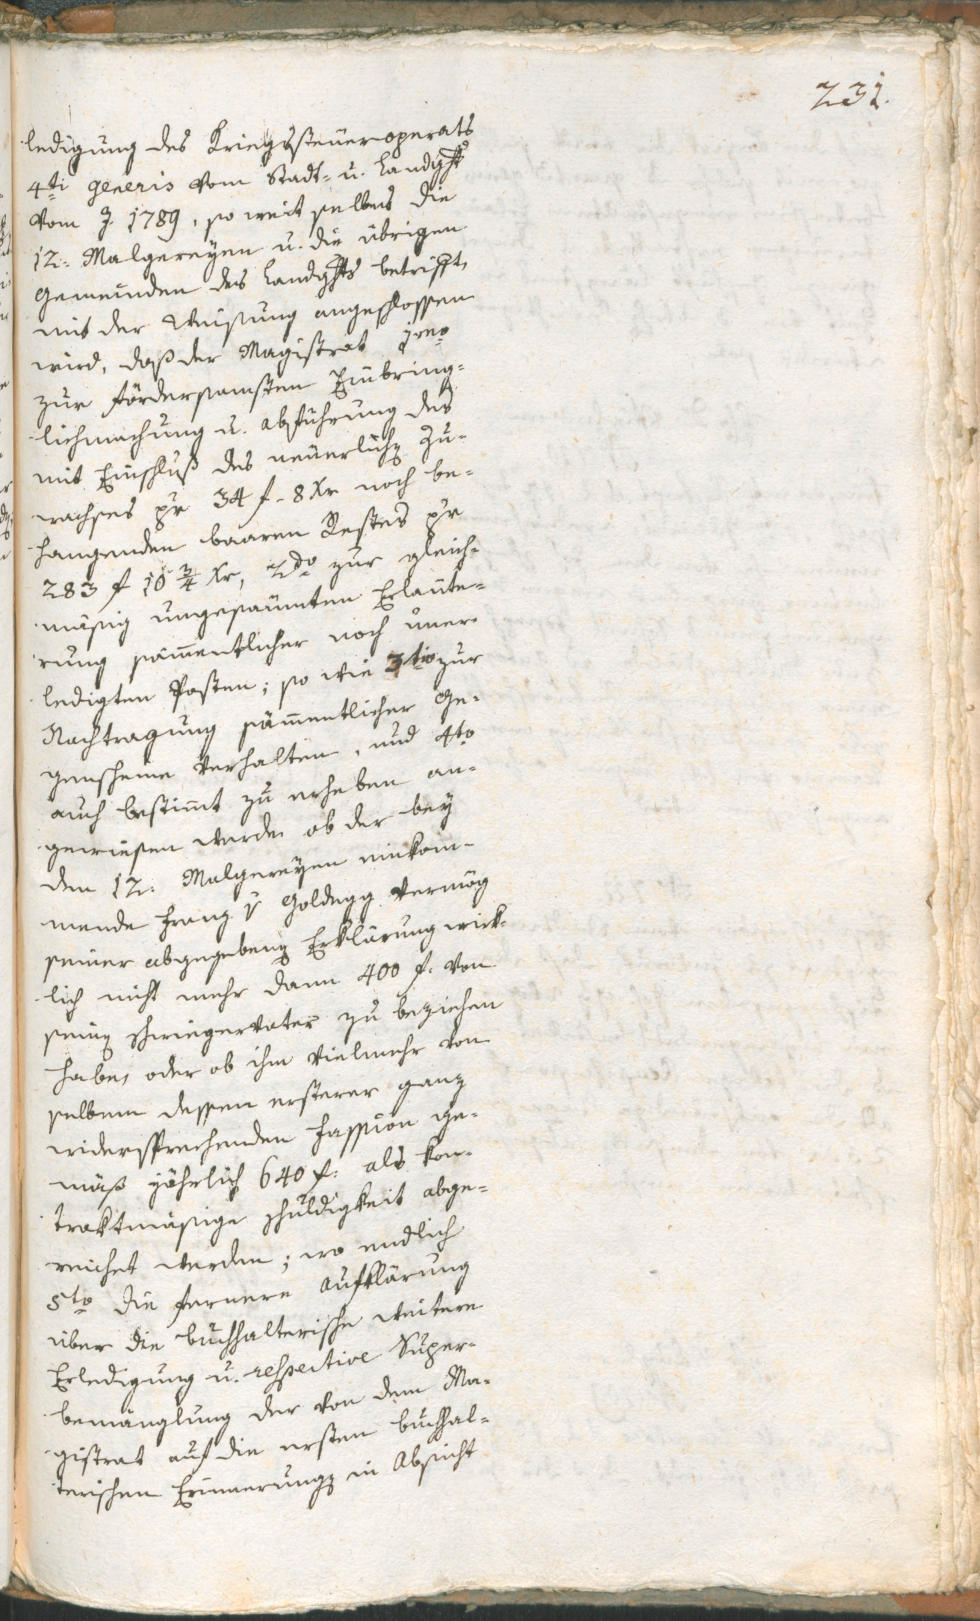 231.
ledigung des Kriegssteueroperats
4ti generis vom Stadt- u. Landght
vom J. 1789, so weit selbes die
12: Malgereyen u. die übrigen
Gemeinden des Landghts betrifft,
mit der Weisung angeschlossen
wird, daß der Magistrat 1mo
zur fördersamsten Einbring-
lichmachung u. Abführung des
mit Einschluß des neuerlichen Zu-
wachses pr 34 f. 8 Xr noch be-
hangenden baaren Restes pr
283 f 10 3/4 Xr, 2do zur gleich-
mäßig ungesäumten Erläute-
rung sämentlicher noch uner-
ledigten Posten; so wie 3tio zur
Nachtragung sämentlicher Ge-
genscheine verhalten, und 4to
auch bestimt zu erheben an-
gewiesen werde ob der bey
den 12: Malgereyen einkom-
mende Franz v Goldegg vermög
seiner abgegebenen Erklärung wirk-
lich nicht mehr dann 400 f. von
seinen Schwiegervater zu beziehen
habe, oder ob ihm vielmehr von
selbem dessen ersterer ganz
widersprechenden Fassion ge-
mäß jährlich 640 f: als kon-
traktmäßige Schuldigkeit abge-
reichet werden; wo endlich
5to die fernere Aufklärung
über die buchhalterische weitere
Erledigung u. respective Super-
bemänglung der von dem Ma-
gistrat auf die ersten buchhal-
terischen Erinnerungen in Absicht